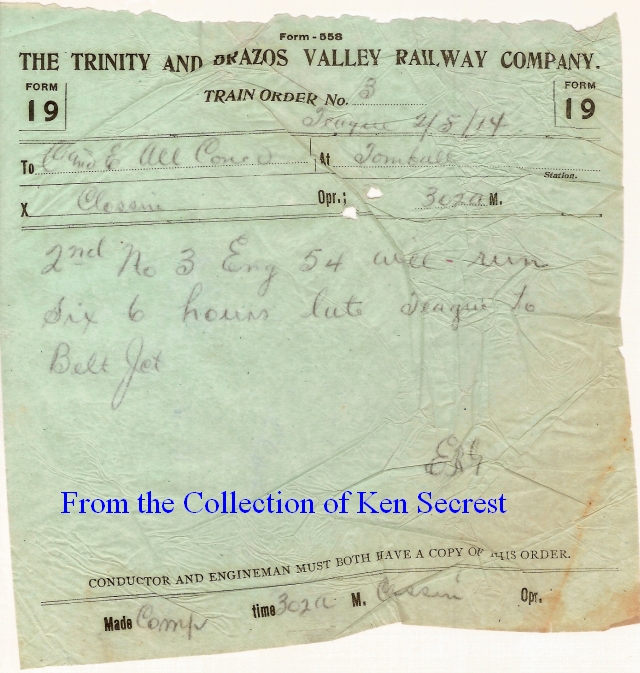 Form - 558
THE TRINITY AND BRAZOS VALLEY RAILWAY COMPANY.
FORM 19
TRAIN ORDER No. 3
FORM 19
Teague 2/5/14
To C and E All Conc'd At Tomball
Station.
X Clossin Opr.; 302a M.
2nd No 3 Eng 54 will run
Six 6 hours late Teague to
Belt Jct
From the Collection of Ken Secrest
CONDUCTOR AND ENGINEMAN MUST BOTH HAVE A COPY OF THIS ORDER.
Made Comp time 302a M. Opr.